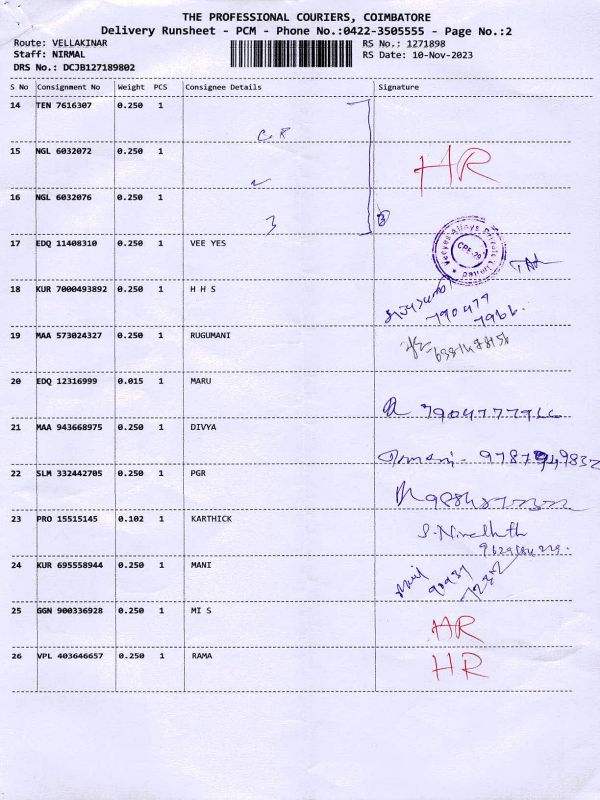 THE PROFESSIONAL COURIERS, COIMBATORE
Delivery Runsheet - PCM - Phone No.:0422-3505555 - Page No.:2
Route: VELLAKINAR RS No.: 1271898
Staff: NIRMAL RS Date: 10-Nov-2023
DRS No.: DCJB127189802
S No Consignment No Weight PCS Consignee Details Signature
14 TEN 7616307 0.250 1
15 NGL 6032072 0.250 1 HR
16 NGL 6032076 0.250 1
3
17 EDQ 11408310 0.250 1 VEE YES
18 KUR 7000493892 0.250 1 H H S
790477
7966
19 MAA 573024327 0.250 1 RUGUMANI
20 EDQ 12316999 0.015 1 MARU
7904777966
21 MAA 943668975 0.250 1 DIVYA
22 SLM 332442705 0.250 1 PGR
23 PRO 15515145 0.102 1 KARTHICK
24 KUR 695558944 0.250 1 MANI
25 GGN 900336928 0.250 1 MI S HR
26 VPL 403646657 0.250 1 RAMA HR